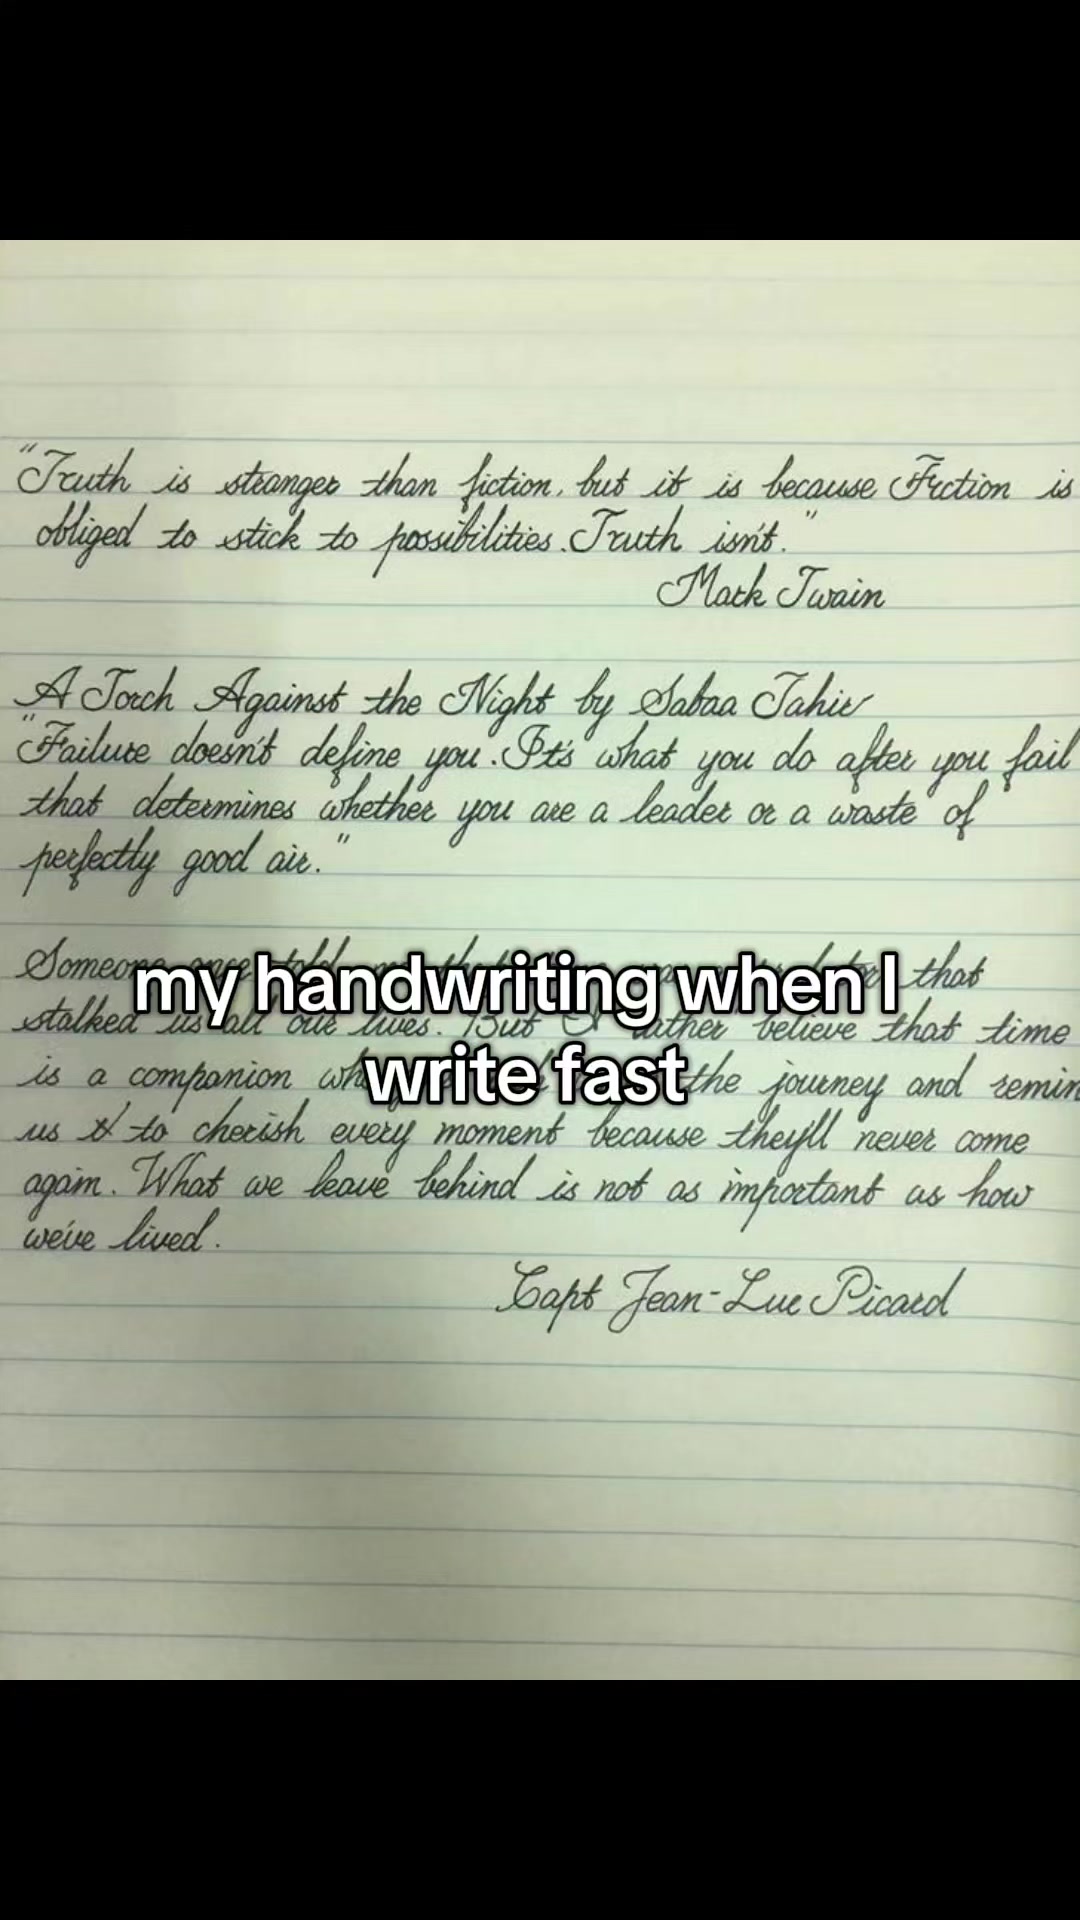 "Truth is stranger than fiction, but it is because Fiction is
obliged to stick to possibilities. Truth isn't."
Mark Twain
A Torch Against the Night by Sabaa Tahir
"Failure doesn't define you. It's what you do after you fail
that determines whether you are a leader or a waste of
perfectly good air."
Someone once told me that that
my handwriting when I
stalked us all our lives. But I rather believe that time
is a companion the journey and remin
write fast
us to cherish every moment because they'll never come
again. What we leave behind is not as important as how
we've lived.
Capt Jean-Luc Picard